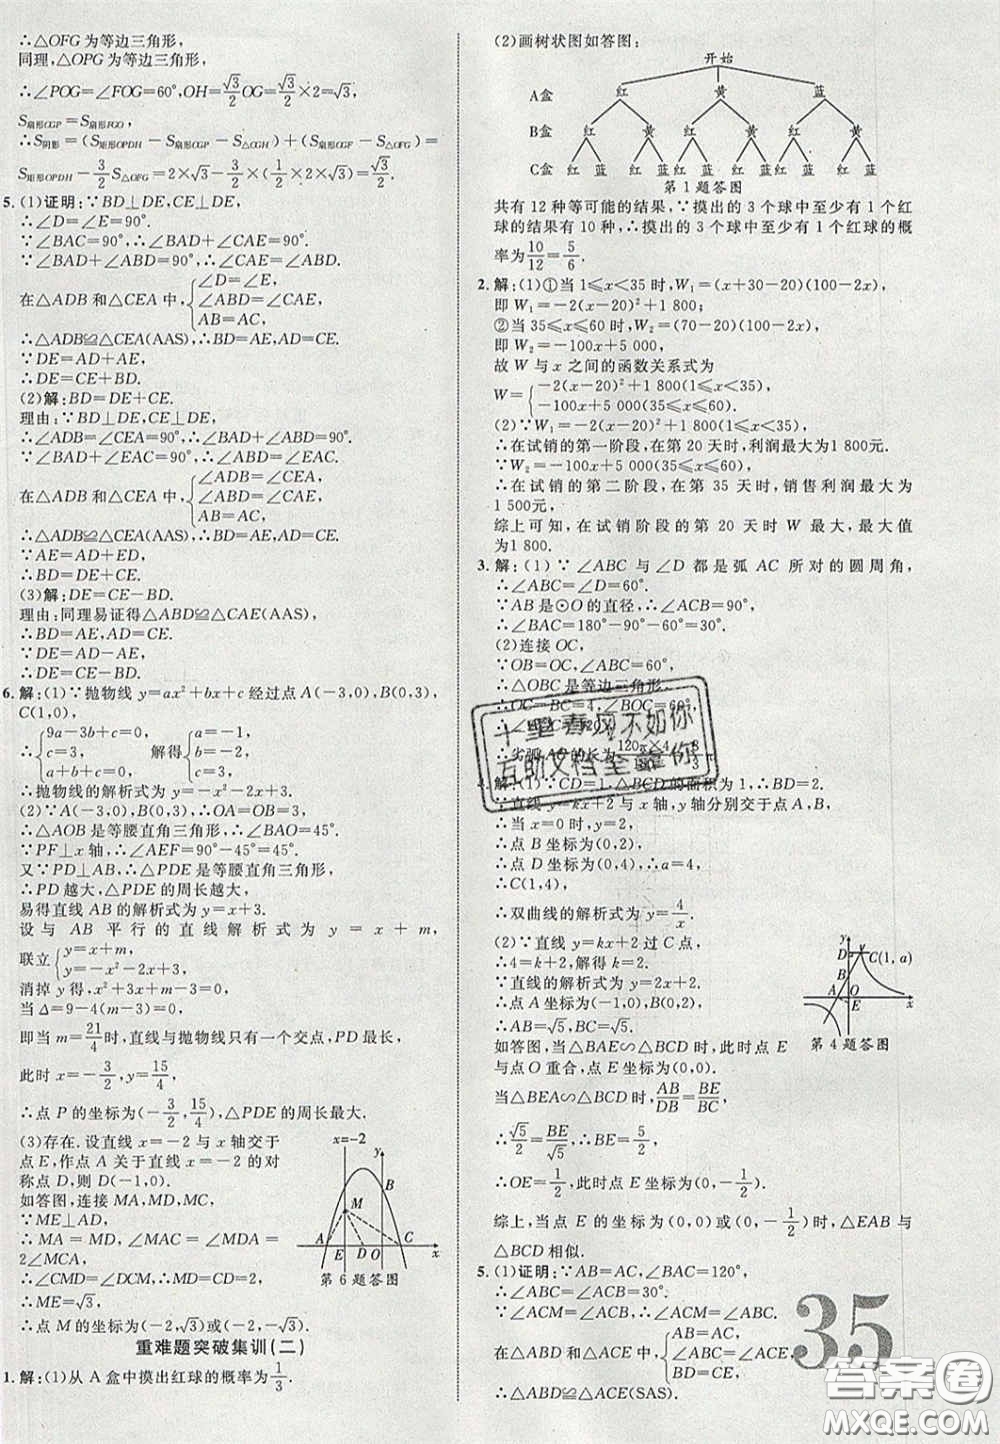 ∴△OFG为等边三角形,
同理,△OPG为等边三角形,
∴∠POG=∠FOG=60°,OH=√3/2 OG=√3/2×2=√3,
S扇形OGP=S扇形FGO.
∴S阴影=(S矩形OPDH-S扇形OGP-S△OGH)+(S扇形OGF-S△OFG)=
S矩形OPDH-3/2 S△OFG=2×√3-3/2×(1/2×2×√3)=√3/2.
5.(1)证明:∵BD⊥DE,CE⊥DE,
∴∠D=∠E=90°.
∵∠BAC=90°,∴∠BAD+∠CAE=90°.
∵∠ABD+∠BAD=90°,∴∠CAE=∠ABD.
在△ADB和△CEA中,{∠D=∠E, ∠ABD=∠CAE, AB=AC,
∴△ADB≌△CEA(AAS),∴BD=AE,AD=CE.
∵DE=AD+AE,
∴DE=CE+BD.
(2)解:BD=DE+CE.
理由:∵BD⊥DE,CE⊥DE,
∴∠ADB=∠CEA=90°,∴∠BAD+∠ABD=90°.
∵∠BAD+∠EAC=90°,∴∠ABD=∠EAC.
在△ADB和△CEA中,{∠ADB=∠CEA, ∠ABD=∠CAE, AB=AC,
∴△ADB≌△CEA(AAS),∴BD=AE,AD=CE.
∵AE=AD+ED,
∴BD=DE+CE.
(3)解:DE=CE-BD.
理由:同理易证得△ABD≌△CAE(AAS),
∴BD=AE,AD=CE.
∵DE=AD-AE,
∴DE=CE-BD.
6.解:(1)∵抛物线y=ax²+bx+c经过点A(-3,0),B(0,3),
C(1,0),
∴{9a-3b+c=0, c=3, a+b+c=0, 解得{a=-1, b=-2, c=3.
∴抛物线的解析式为y=-x²-2x+3.
(2)∵A(-3,0),B(0,3),∴OA=OB=3,
∴△AOB是等腰直角三角形,∴∠BAO=45°.
∵PF⊥x轴,∴∠AEF=90°-45°=45°.
又∵PD⊥AB,∴△PDE是等腰直角三角形,
∴PD越大,△PDE的周长越大.
易得直线AB的解析式为y=x+3.
设与AB平行的直线解析式为y=x+m,
联立{y=x+m, y=-x²-2x+3.
消掉y得,x²+3x+m-3=0.
当Δ=9-4(m-3)=0,
即当m=21/4时,直线与抛物线只有一个交点,PD最长.
此时x=-3/2,y=15/4,
∴点P的坐标为(-3/2,15/4),△PDE的周长最大.
(3)存在.设直线x=-2与x轴交于
点E,作点A关于直线x=-2的对
称点D,则D(-1,0).
如答图,连接MA,MD,MC,
∵ME⊥AD,
∴MA=MD,∠MAD=∠MDA=
2∠MCA,
∴∠CMD=∠DCM,∴MD=CD=2,
∴ME=√3,
∴点M的坐标为(-2,√3)或(-2,-√3).
x=-2
y
B
M
A
E
D
O
C
x
第6题答图
重难题突破集训(二)
1.解:(1)从A盒中摸出红球的概率为1/3.
(2)画树状图如答图:
开始
A盒 红 黄 蓝
B盒 红 黄 红 黄 红 黄
C盒 红 蓝 红 蓝 红 蓝 红 蓝 红 蓝 红 蓝
第1题答图
共有12种等可能的结果,∵摸出的3个球中至少有1个红
球的结果有10种,∴摸出的3个球中至少有1个红球的概
率为10/12=5/6.
2.解:(1)①当1≤x<35时,W₁=(x+30-20)(100-2x),
即W₁=-2(x-20)²+1 800;
②当35≤x≤60时,W₂=(70-20)(100-2x),
即W₂=-100x+5 000,
故W与x之间的函数关系式为
W={-2(x-20)²+1 800(1≤x<35), -100x+5 000(35≤x≤60).
(2)∵W₁=-2(x-20)²+1 800(1≤x<35).
∴在试销的第一阶段,在第20天时,利润最大为1 800元.
∵W₂=-100x+5 000(35≤x≤60),
∴在试销的第二阶段,在第35天时,销售利润最大为
1 500元.
综上可知,在试销阶段的第20天时W最大,最大值
为1 800.
3.解:(1)∵∠ABC与∠D都是弧AC所对的圆周角,
∴∠ABC=∠D=60°.
∵AB是⊙O的直径,∴∠ACB=90°,
∴∠BAC=180°-90°-60°=30°.
(2)连接OC,
∵OB=OC,∠ABC=60°,
∴△OBC是等边三角形.
∴OC=BC=4,∠BOC=60°,
∴劣弧 的长为
十里春风不如你
互助文档全靠你
4.解:(1)∵CD=1,△BCD的面积为1,∴BD=2.
∵直线y=kx+2与x轴,y轴分别交于点A,B,
∴当x=0时,y=2,
∴点B坐标为(0,2),
∴点D坐标为(0,4),∴a=4,
∴C(1,4),
∴双曲线的解析式为y=4/x.
(2)∵直线y=kx+2过C点,
∴4=k+2,解得k=2.
∴直线的解析式为y=2x+2.
∴点A坐标为(-1,0),B(0,2),
∴AB=√5,BC=√5.
如答图,当△BAE∽△BCD时,此时点E
与点O重合,点E坐标为(0,0).
当△BEA∽△BCD时,AB/DB=BE/BC,
∴√5/2=BE/√5,∴BE=5/2,
∴OE=1/2,此时点E坐标为(0,-1/2).
综上,当点E的坐标为(0,0)或(0,-1/2)时,△EAB与
△BCD相似.
y
D
C(1,a)
B
A
O
E
x
第4题答图
5.(1)证明:∵AB=AC,∠BAC=120°,
∴∠ABC=∠ACB=30°.
∵∠ACM=∠ACB,∴∠ACM=∠ABC.
在△ABD和△ACE中,{AB=AC, ∠ABC=∠ACE, BD=CE,
∴△ABD≌△ACE(SAS).
35
答案圈
MXQE.COM